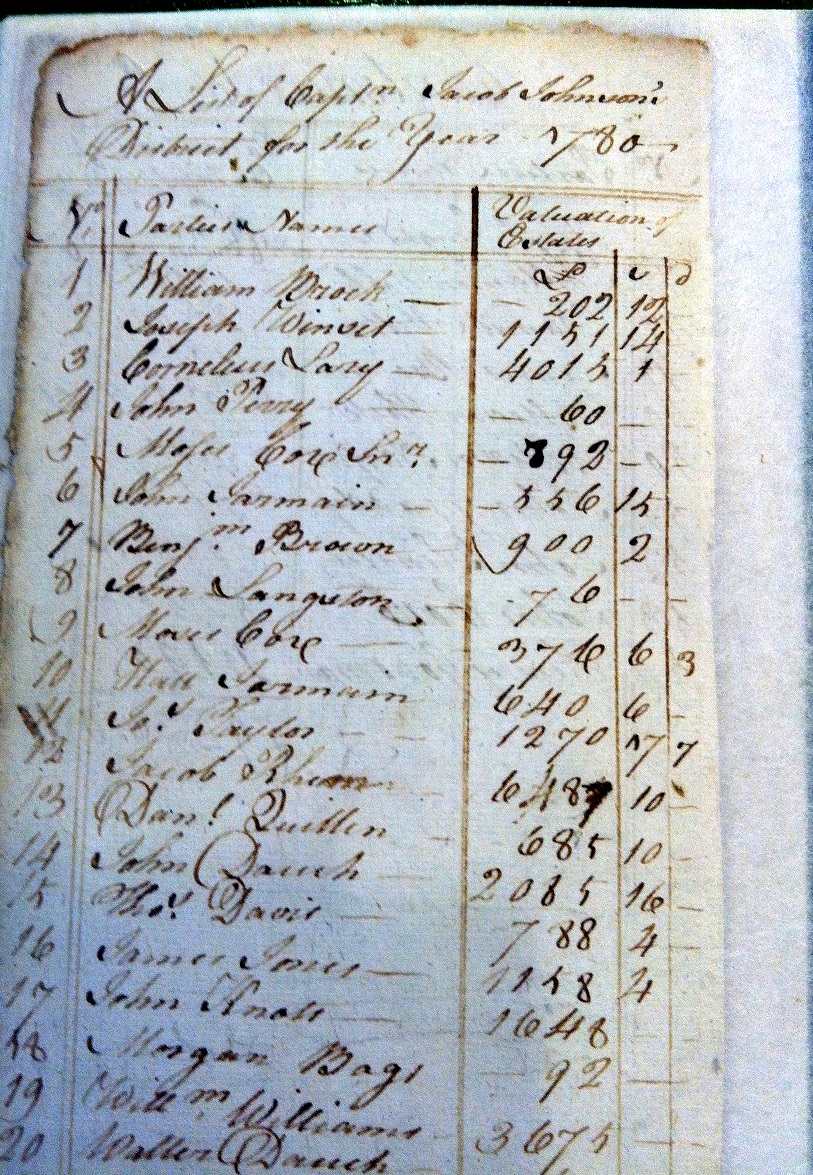 A List of Captn. Jacob Johnson's
District for the Year 1780
No. Parties Names Valuation of Estates
£ s d
1 William Brock — — 202 12
2 Joseph Winset — 1151 14
3 Cornelius Lary — 4015 1
4 John Perry — — 60 —
5 Moses Cox Snr. — 892 — -
6 John Jarmain — - 556 15
7 Benjm. Brown 900 2
8 John Langston - 76 - -
9 Moses Cox — 376 6 3
10 Hall Jarmain 640 6 -
11 Jos. Taylor - - 1270 17 7
12 Jacob Rhem 6487 10 -
13 Danl. Quillin - 685 10 -
14 John Dauch — 2085 16 -
15 Thos. Davis — 788 4 -
16 James Jones — 1158 4
17 John Knott — 1648
18 Morgan Bags — 92 — —
19 Willm. Williams - 3675 — -
20 Walter Dauch